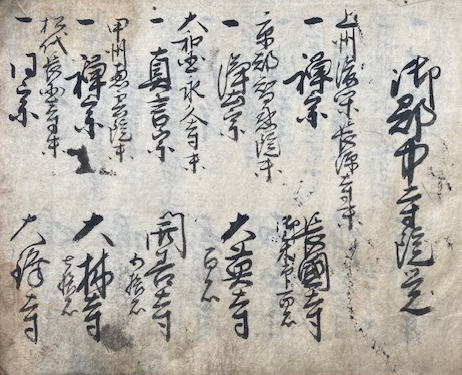 御郡中寺院覚
上州後閑長源寺末
一 禅宗 長國寺
御朱印百石
京都智恩院末
一 浄土宗 大英寺
百石
大和国永久寺末
一 真言宗 開善寺
五拾石
甲州恵林院末
一 禅宗 大林寺
七拾石
松代長國寺末
一 同宗 大鋒寺